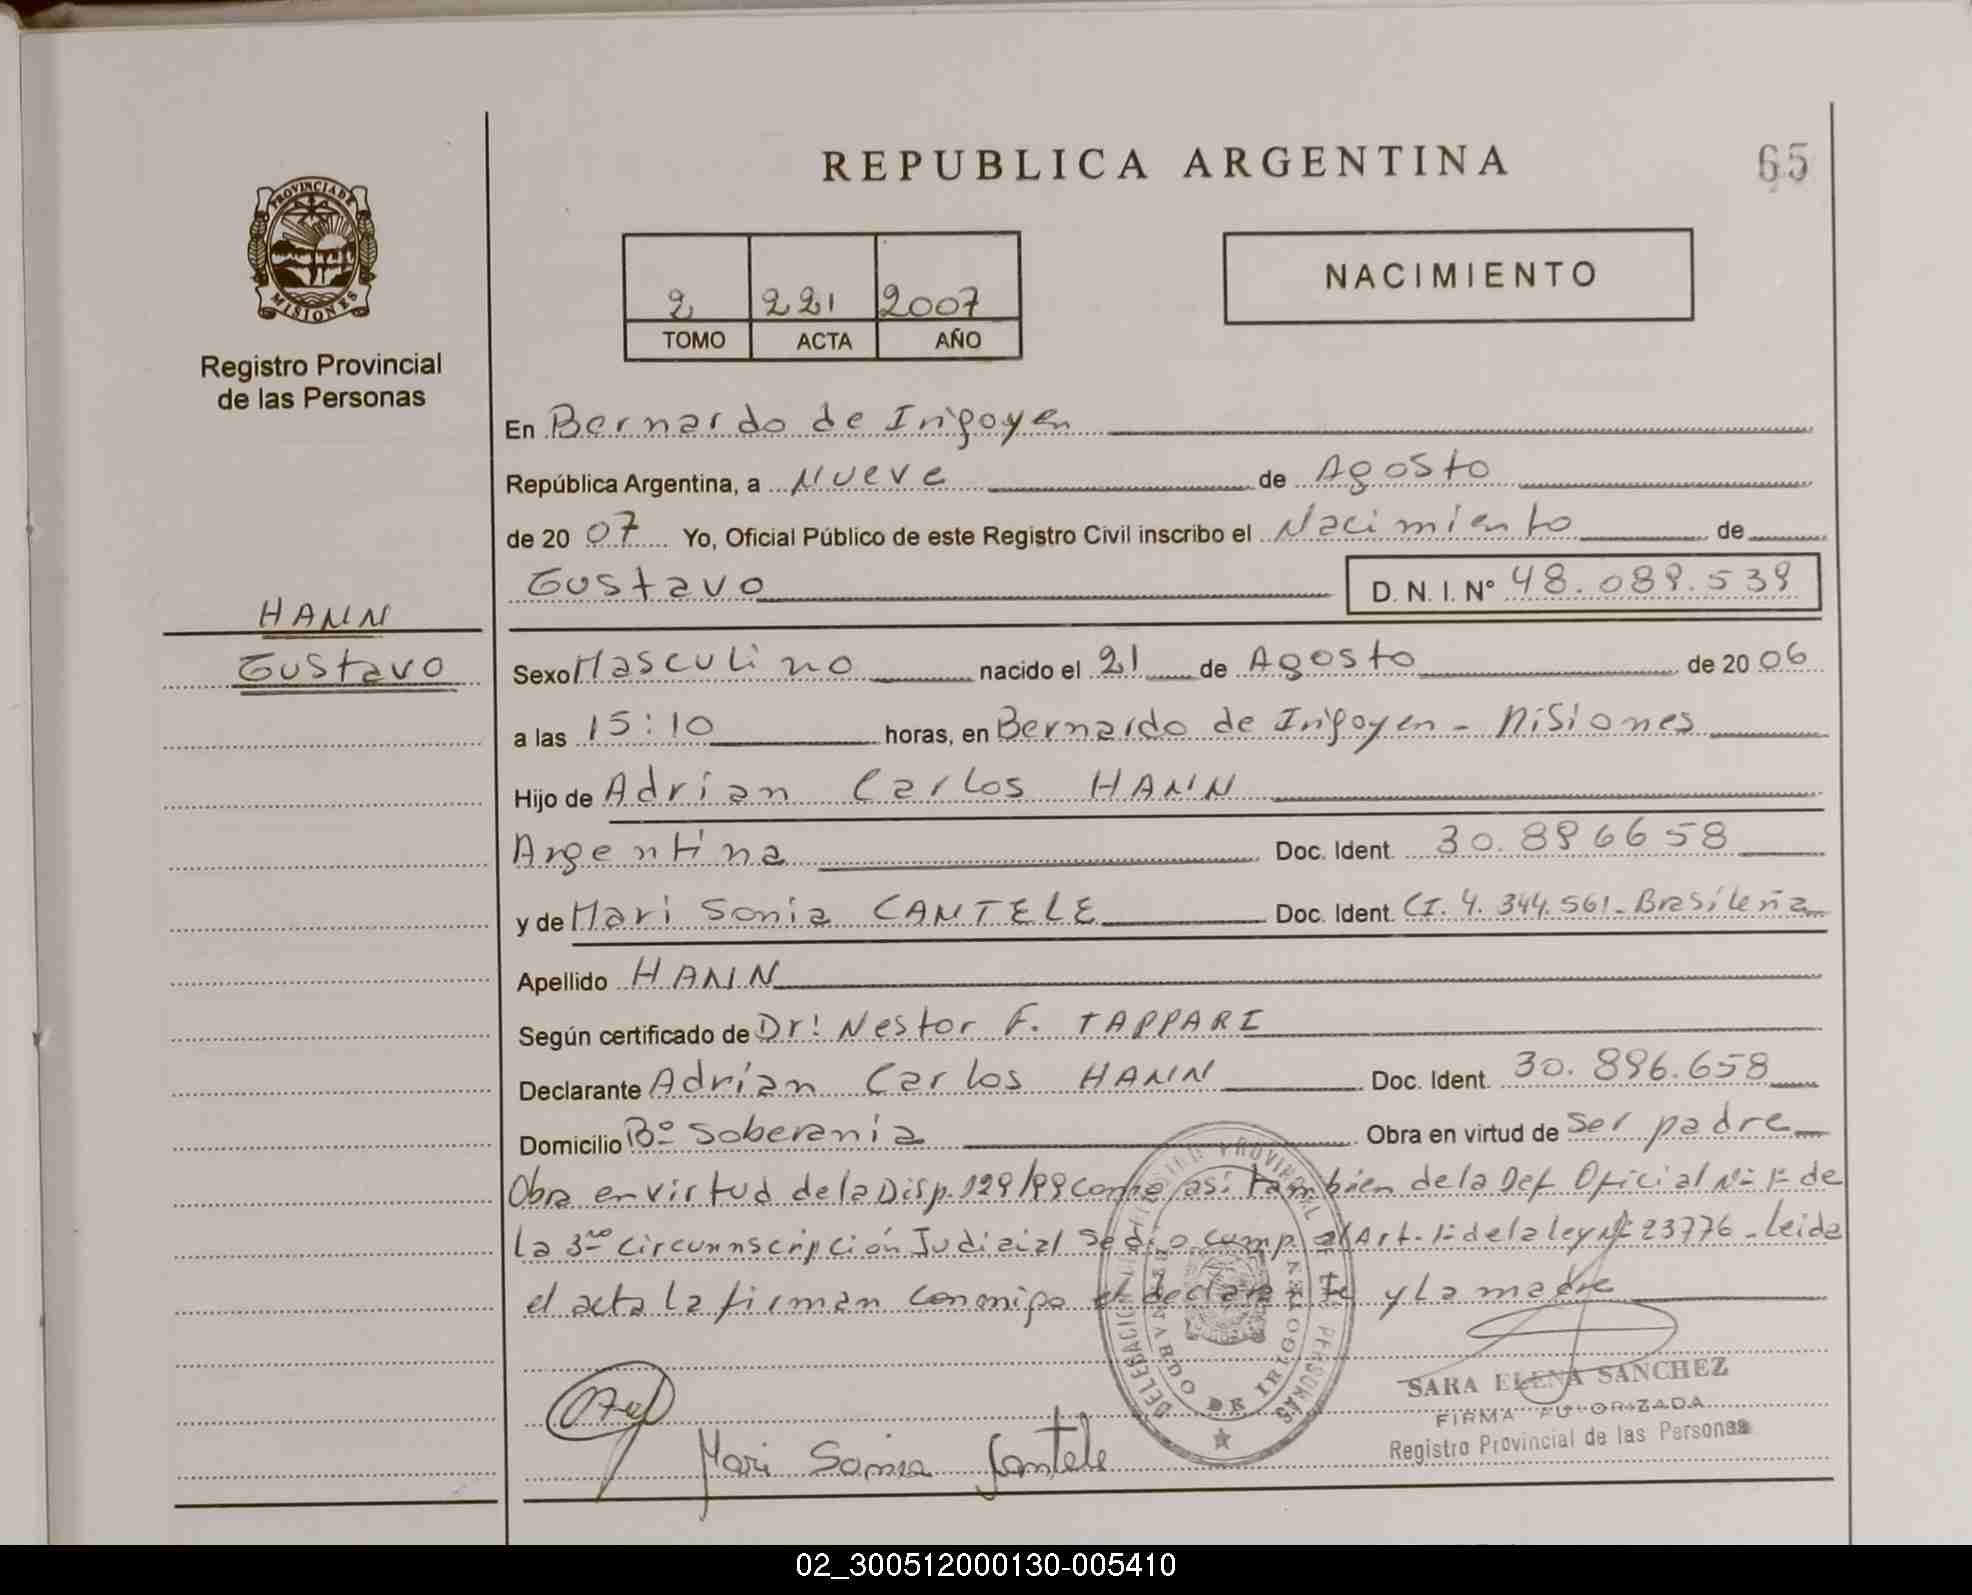 REPUBLICA ARGENTINA
65
PROVINCIA DE
MISIONES
Registro Provincial
de las Personas
2 221 2007
TOMO ACTA AÑO
NACIMIENTO
En Bernardo de Irigoyen
República Argentina, a Nueve de Agosto
de 20 07 Yo, Oficial Público de este Registro Civil inscribo el Nacimiento de
Gustavo D. N. I. Nº 48.089.539
HANN
Gustavo
Sexo Masculino nacido el 21 de Agosto de 20 06
a las 15:10 horas, en Bernardo de Irigoyen - Misiones
Hijo de Adrian Carlos HANN
Argentina Doc. Ident. 30.896658
y de Mari Sonia CANTELE Doc. Ident. CI. 4.344.561- Brasileña
Apellido HANN
Según certificado de Dr! Nestor F. TAPPARI
Declarante Adrían Carlos HANN Doc. Ident. 30.896.658
Domicilio Bº Soberania Obra en virtud de ser padre
Obra en virtud de la Disp. 129/99 como asi también de la Def Oficial Nº 1º de
la 3ra Circunnscripción Judicial se dio cump. al Art. 1º de la ley Nº 23776 - Leida
el acta la firman conmigo el declarante y la madre
DELEGACION REGISTRO PROVINCIAL DE LAS PERSONAS
BERNARDO DE IRIGOYEN
SARA ELENA SANCHEZ
FIRMA AUTORIZADA
Registro Provincial de las Personas
Mari Sonia Cantele
02_300512000130-005410